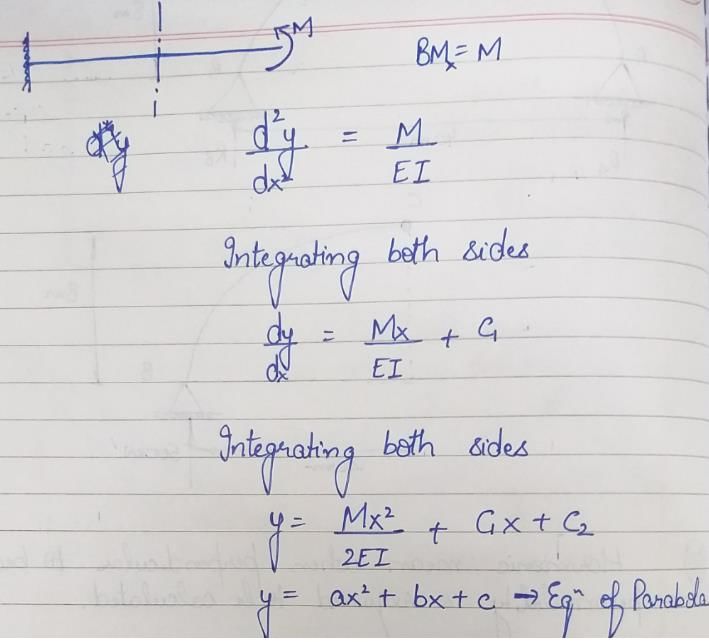 M
BMₓ = M
d²y/dx² = M/EI
Integrating both sides
dy/dx = Mx/EI + C₁
Integrating both sides
y = Mx²/2EI + C₁x + C₂
y = ax² + bx + c → Eqⁿ of Parabola